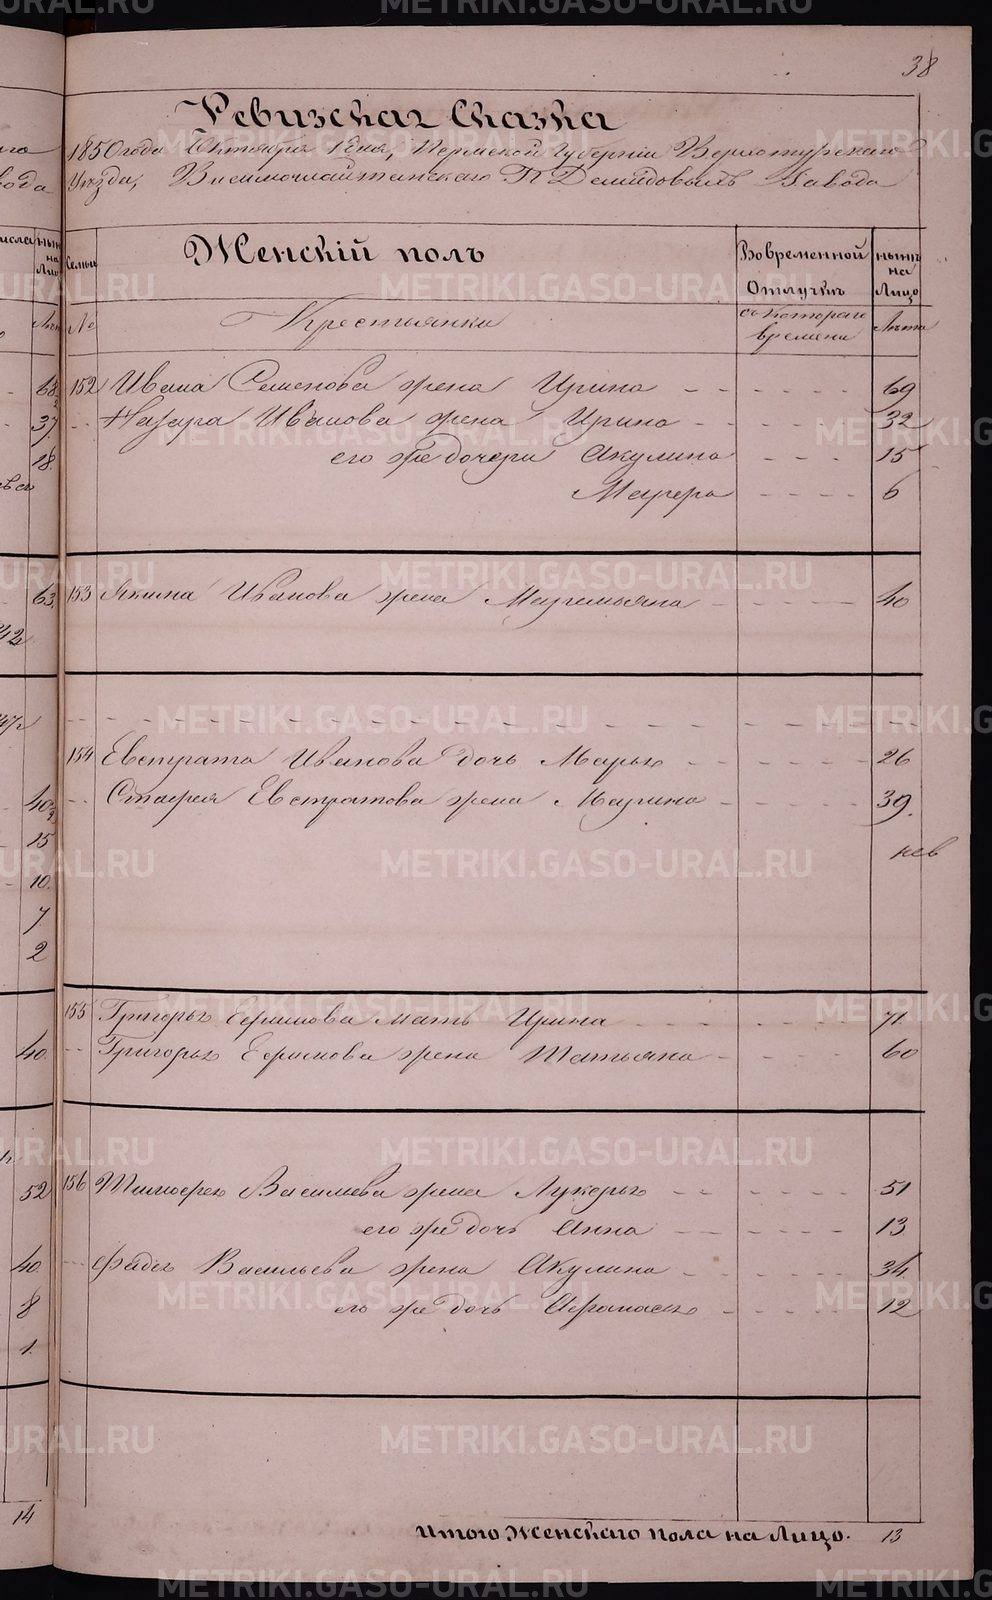 38
Ревизская Сказка
1850 года Октября дня, Пермской Губерніи Верхотурскаго
Уезда, Висимошайтанскаго Демидовыхъ Завода
Семьи
Женскій полъ
Во временной Отлучкѣ
нынѣ на Лицо
№
Крестьянки
съ котораго времени
Лѣта
152 Ивана Семенова жена Ирина 69
Назара Иванова жена Ирина 32
его же дочери Акулина 15
Мавра 6
153 Якима Иванова жена Маремьяна 40
154 Евстрата Иванова дочь Марья 26
Евстратова жена Марина 39.
155 Григорья Ефимова мать Ирина 71.
Григорья Ефимова жена Татьяна 60
156 Тимофея Васильева жена Лукерья 51
его же дочь Анна 13
Фадея Васильева жена Акулина 34
его же дочь Афанасья 12
Итого Женскаго пола на Лицо. 13
METRIKI.GASO-URAL.RU